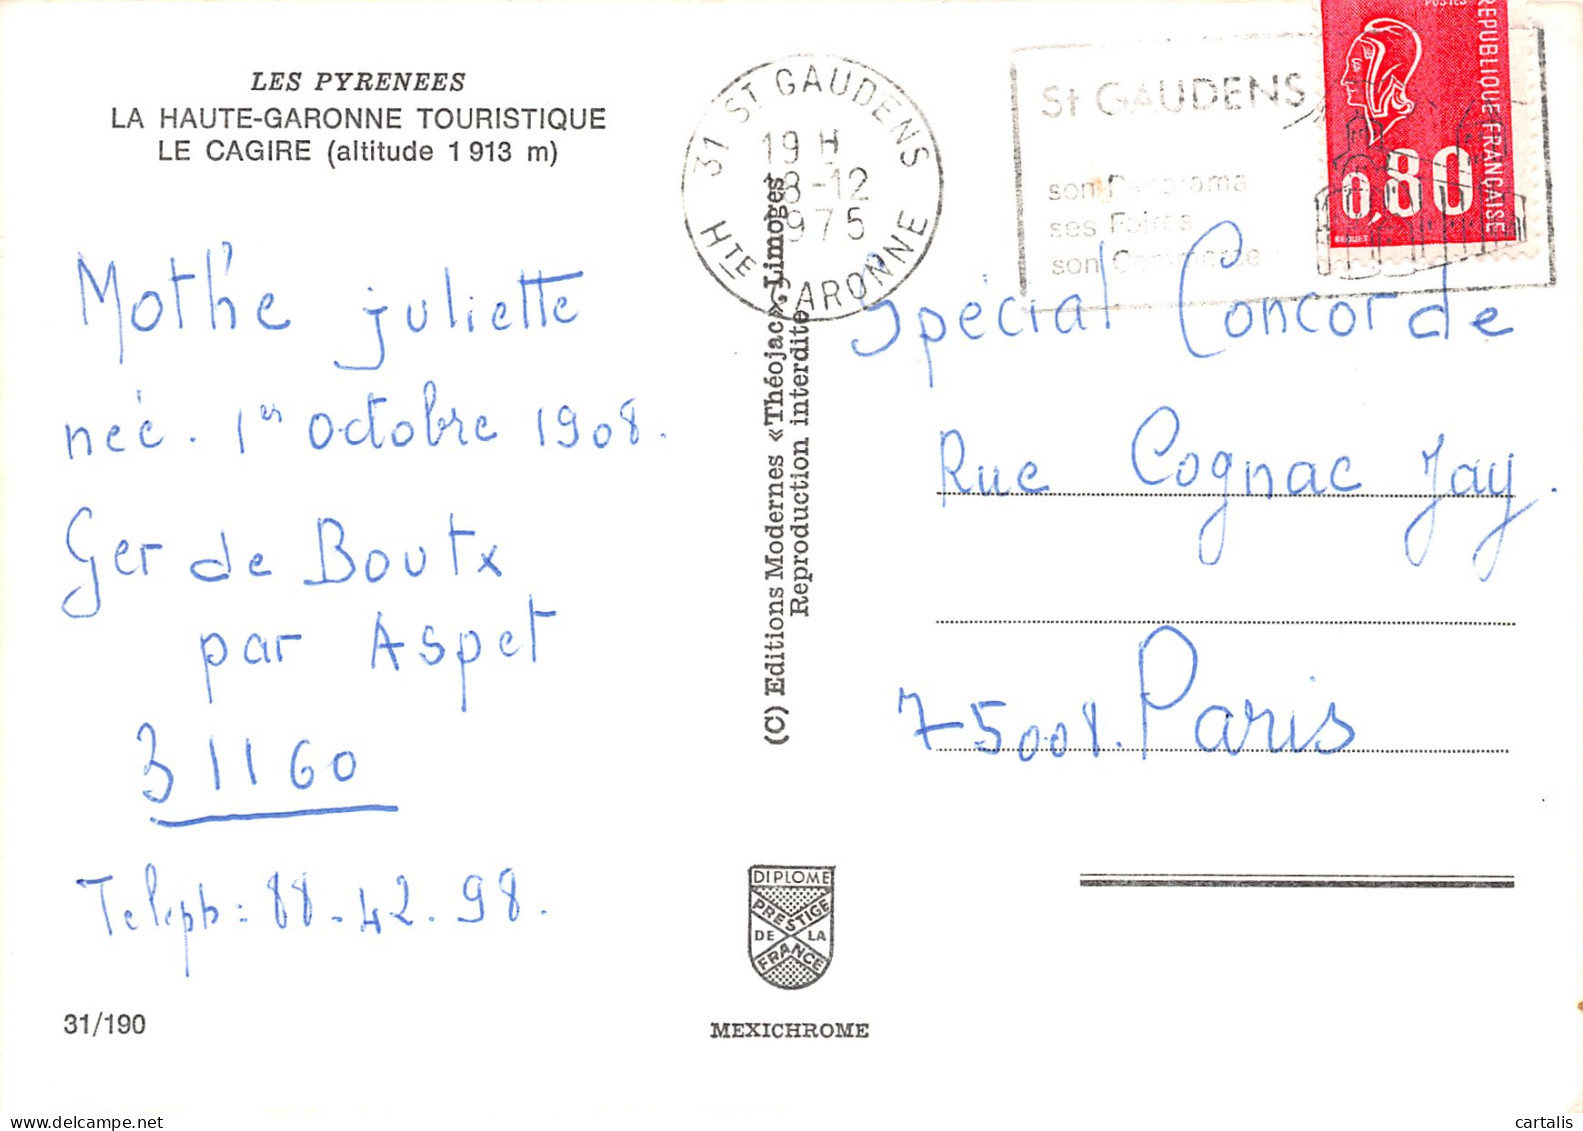 LES PYRENEES
LA HAUTE-GARONNE TOURISTIQUE
LE CAGIRE (altitude 1 913 m)
Moth'e juliette
née. 1er octobre 1908.
Ger de Boutx
par Aspet
31160
Teleph: 88-42.98.
31/190
(C) Editions Modernes «Théojac» Limoges
Reproduction interdite
DIPLOME
PRESTIGE
DE LA
FRANCE
MEXICHROME
31 ST GAUDENS
19 H
8-12
1975
HTE GARONNE
St GAUDENS
son Panorama
ses Foires
son Commerce
POSTES
REPUBLIQUE FRANÇAISE
0,80
BEQUET
Spécial Concorde
Rue Cognac Jay.
75008. Paris
cartalis
delcampe.net